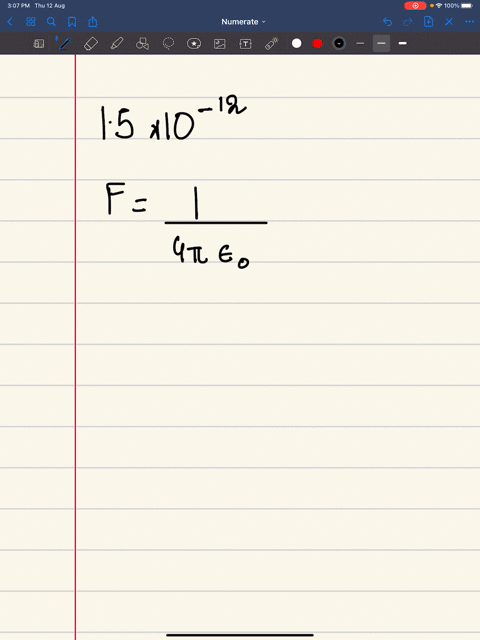 3:07 PM Thu 12 Aug 100%
Numerate
1.5 x10^-12
F = 1
4π ϵ0